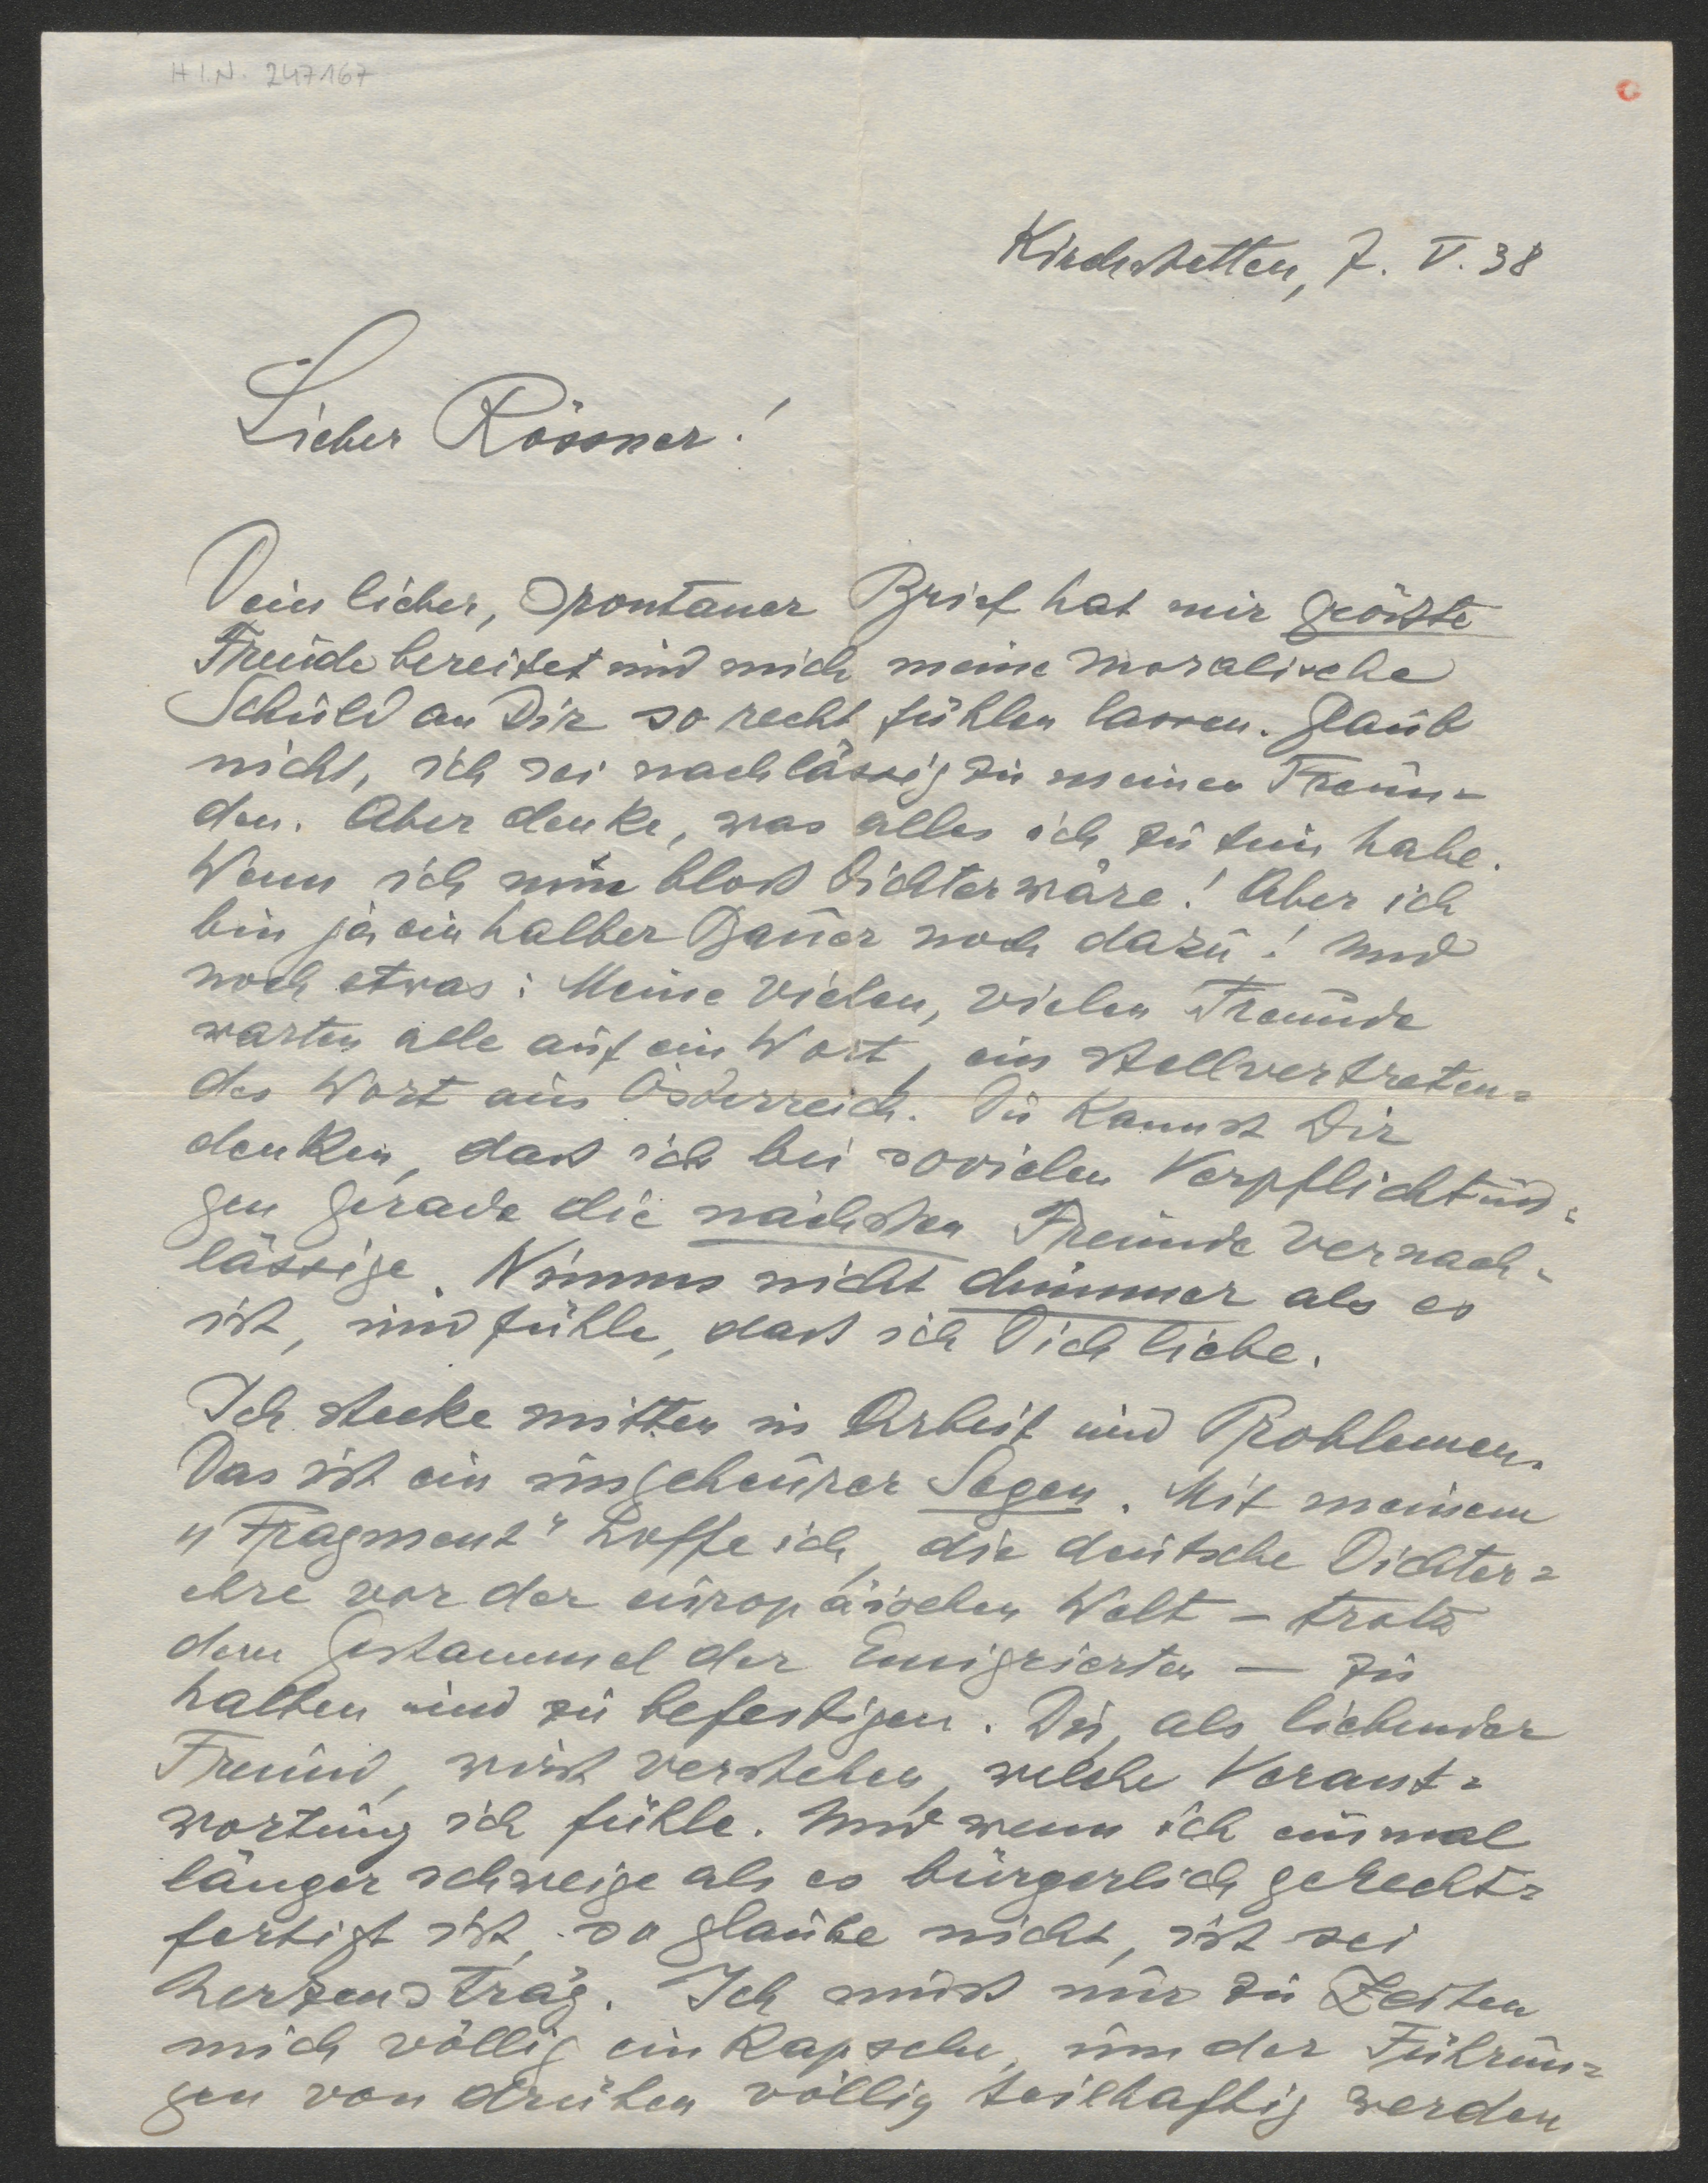 H I.N. 247167
Kirchstetten, 7. V. 38
Lieber Rössner!
Dein lieber, spontaner Brief hat mir größte
Freude bereitet und mich meine moralische
Schuld an Dir so recht fühlen lassen. Glaub
nicht, ich sei nachlässig zu meinen Freun=
den. Aber denke, was alles ich zu tun habe.
Wenn ich nur bloß Dichter wäre! Aber ich
bin ja ein halber Bauer noch dazu! Und
noch etwas: Meine vielen, vielen Freunde
warten alle auf ein Wort, ein stellvertreten=
des Wort aus Österreich. Du kannst Dir
denken, daß ich bei sovielen Verpflichtun=
gen gerade die nächsten Freunde vernach=
lässige. Nimms nicht dümmer als es
ist, und fühle, daß ich Dich liebe.
Ich stecke mitten in Arbeit und Problemen.
Das ist ein ungeheurer Segen. Mit meinem
„Fragment" hoffe ich, die deutsche Dichter=
ehre vor der europäischen Welt – trotz
dem Gestammel der Emigrierten — zu
halten und zu befestigen. Du, als liebender
Freund, wirst verstehen, welche Verant=
wortung ich fühle. Und wenn ich einmal
länger schweige als es bürgerlich gerecht=
fertigt ist, so glaube nicht, ist sei
herzensträg. Ich muß nur zu Zeiten
mich völlig einkapseln, um der Führun=
gen von drüben völlig teilhaftig werden